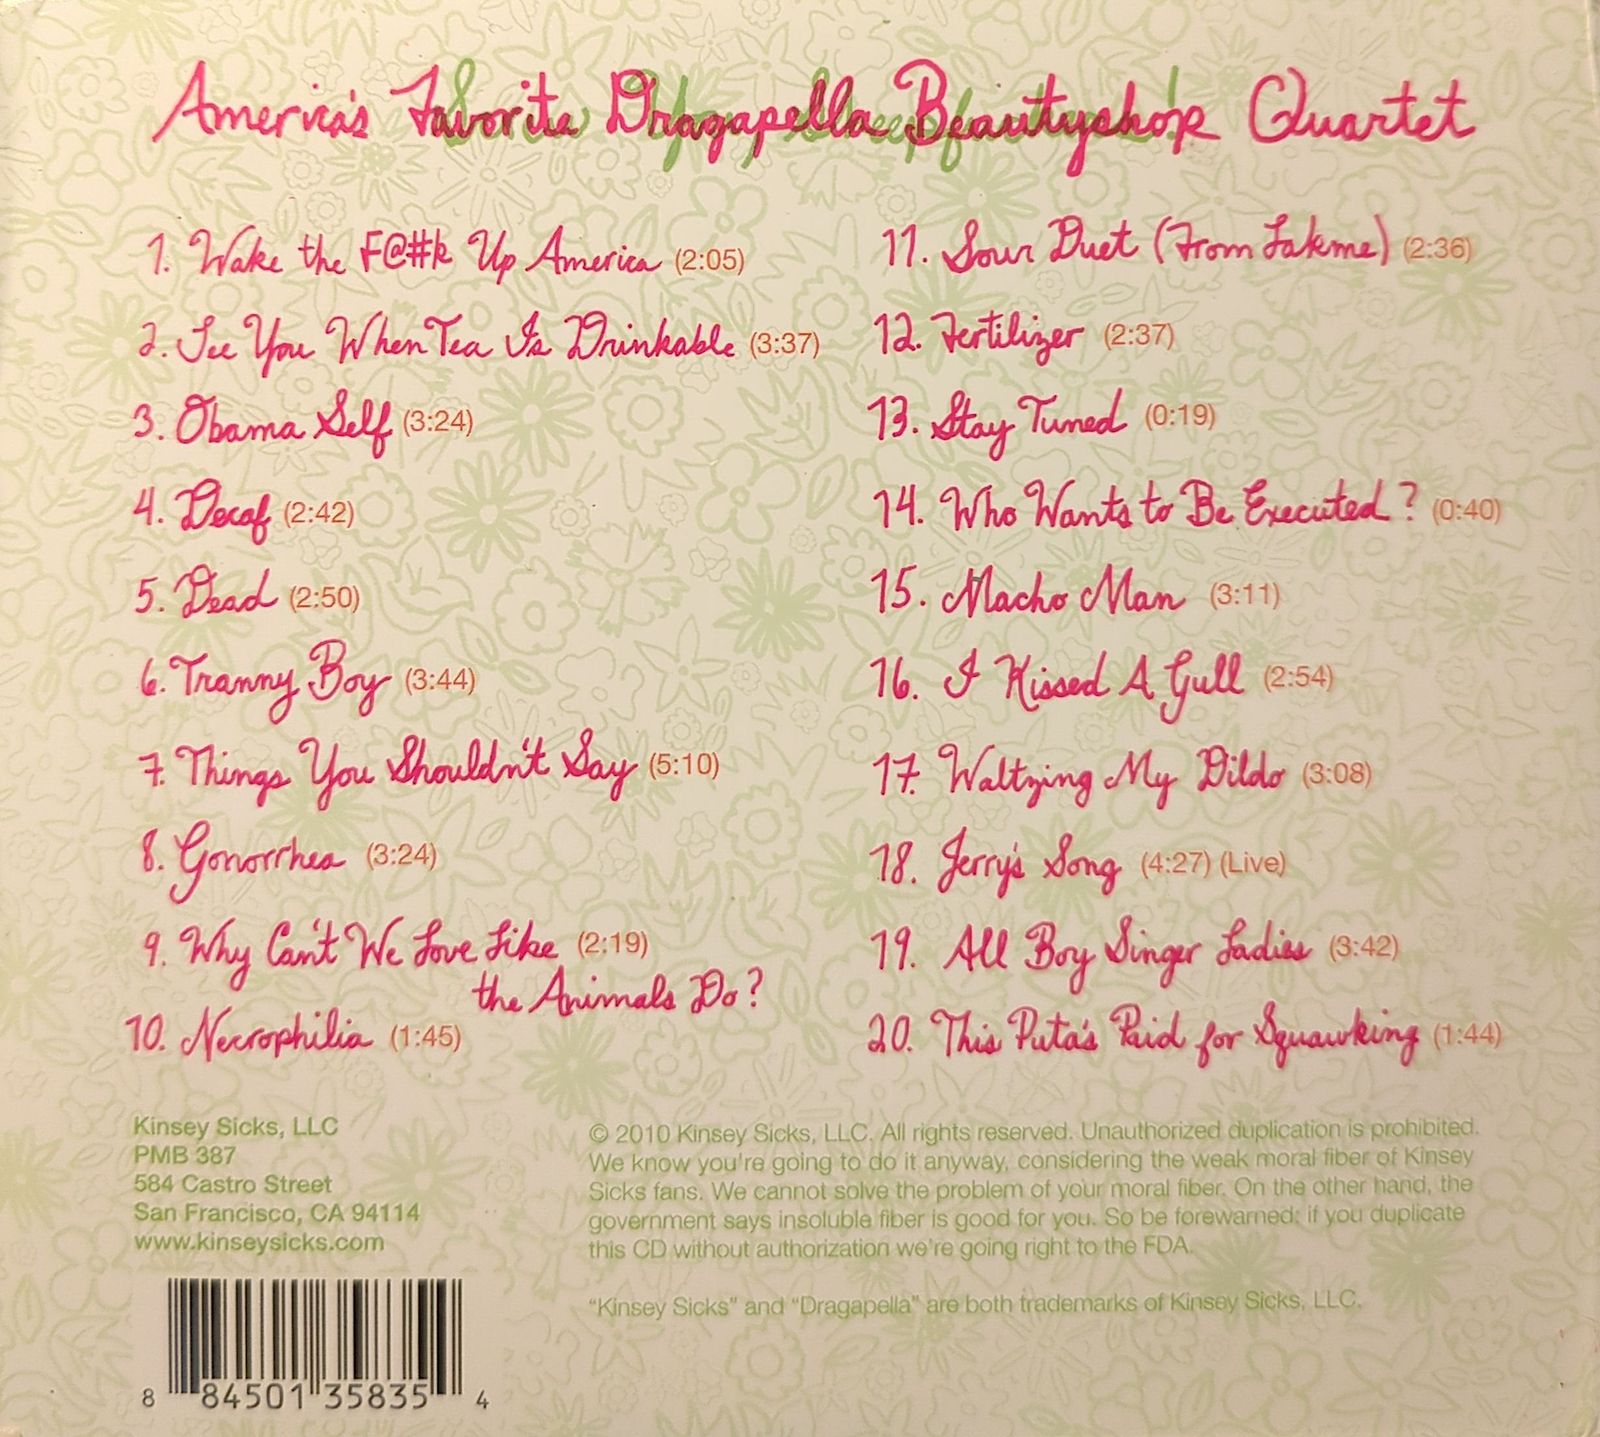 America's Favorite Dragapella Beautyshop Quartet
1. Wake the F@#k Up America (2:05)
2. See You When Tea Is Drinkable (3:37)
3. Obama Self (3:24)
4. Decaf (2:42)
5. Dead (2:50)
6. Tranny Boy (3:44)
7. Things You Shouldn't Say (5:10)
8. Gonorrhea (3:24)
9. Why Can't We Love Like (2:19)
the Animals Do?
10. Necrophilia (1:45)
11. Sour Duet (From Lakme) (2:36)
12. Fertilizer (2:37)
13. Stay Tuned (0:19)
14. Who Wants to Be Executed? (0:40)
15. Macho Man (3:11)
16. I Kissed A Gull (2:54)
17. Waltzing My Dildo (3:08)
18. Jerry's Song (4:27) (Live)
19. All Boy Singer Ladies (3:42)
20. This Puta's Paid for Squawking (1:44)
Kinsey Sicks, LLC
PMB 387
584 Castro Street
San Francisco, CA 94114
www.kinseysicks.com
8 84501 35835 4
© 2010 Kinsey Sicks, LLC. All rights reserved. Unauthorized duplication is prohibited.
We know you're going to do it anyway, considering the weak moral fiber of Kinsey
Sicks fans. We cannot solve the problem of your moral fiber. On the other hand, the
government says insoluble fiber is good for you. So be forewarned: if you duplicate
this CD without authorization we're going right to the FDA.
"Kinsey Sicks" and "Dragapella" are both trademarks of Kinsey Sicks, LLC.